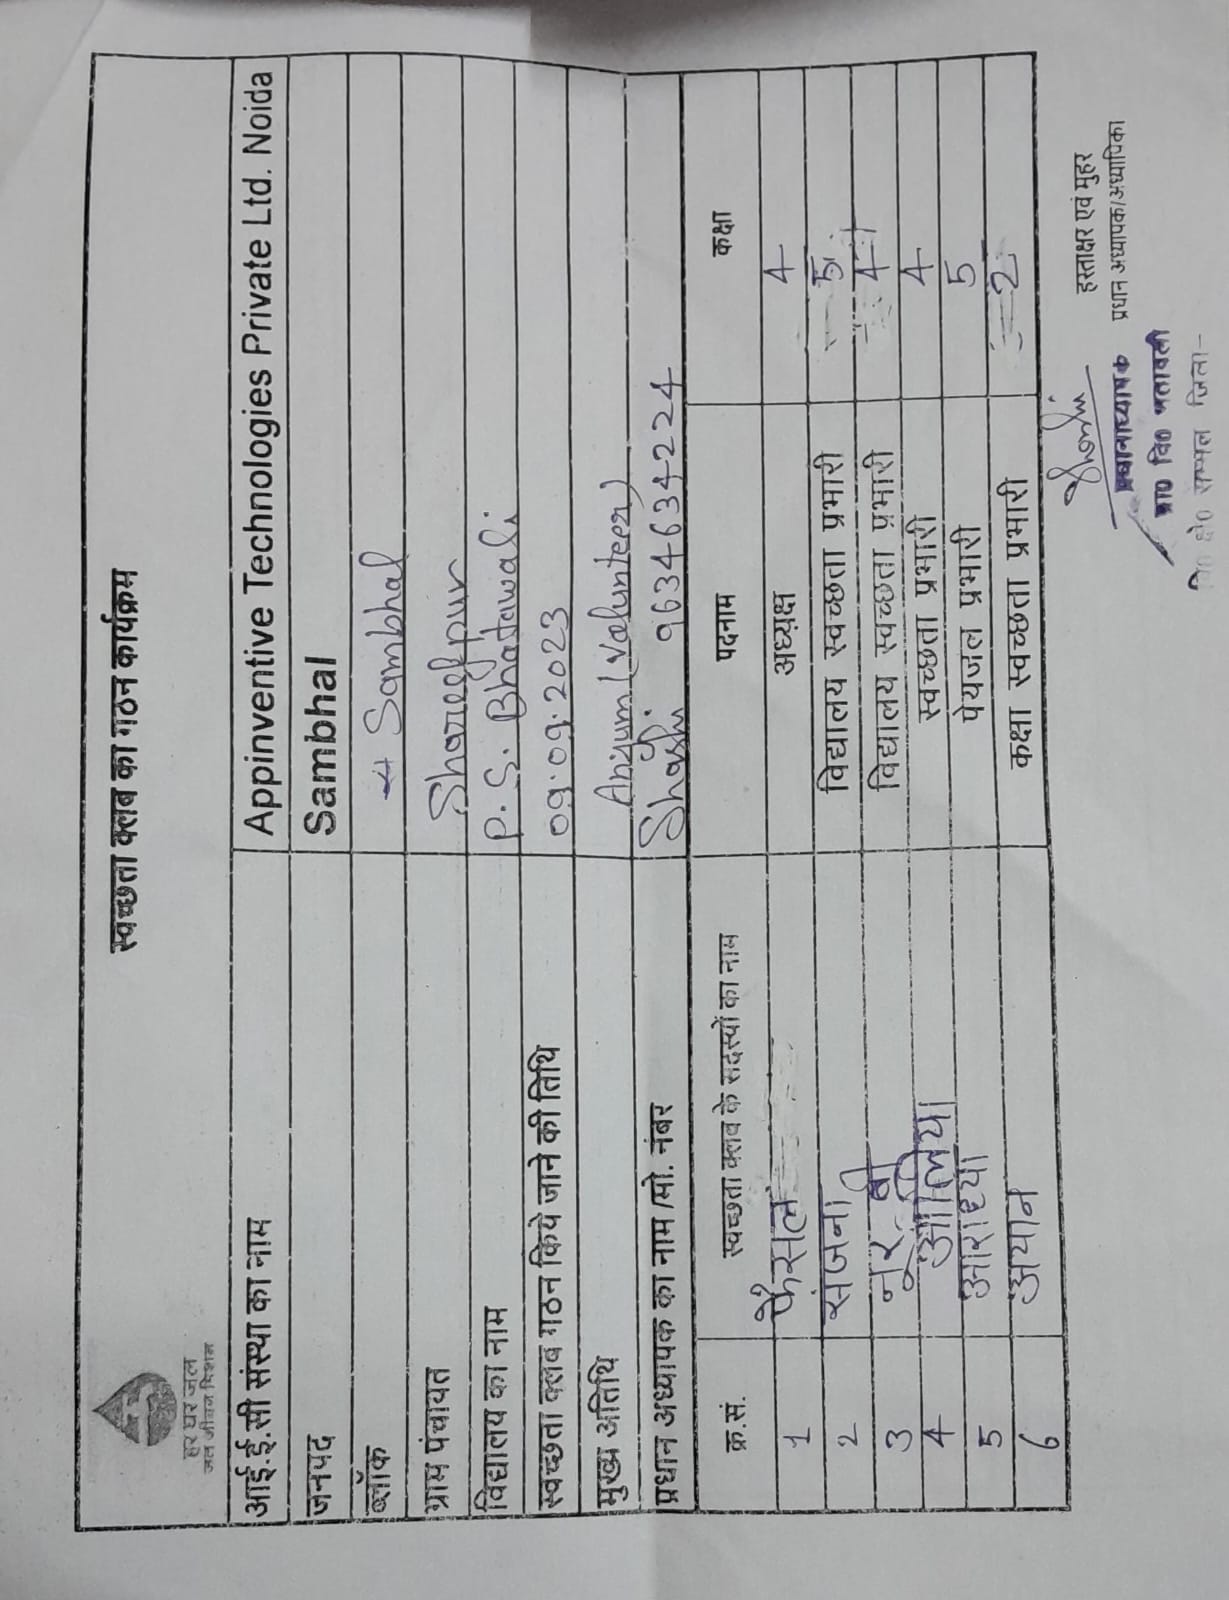 हर घर जल
जल जीवन मिशन
स्वच्छता क्लब का गठन कार्यक्रम
आई.ई.सी संस्था का नाम Appinventive Technologies Private Ltd. Noida
जनपद Sambhal
ब्लॉक Sambhal
ग्राम पंचायत Shareefpur
विद्यालय का नाम P.S. Bhatawali
स्वच्छता क्लब गठन किये जाने की तिथि 09.09.2023
मुख्य अतिथि Anjum (Volunteer)
प्रधान अध्यापक का नाम /मो. नंबर Shashi 9634634224
क्र.सं. स्वच्छता क्लब के सदस्यों का नाम पदनाम कक्षा
1 फैसल अध्यक्ष 4
2 सजना विद्यालय स्वच्छता प्रभारी 5
3 विद्यालय स्वच्छता प्रभारी 4
4 आलिया स्वच्छता प्रभारी 4
5 आराध्या पेयजल प्रभारी 5
6 अयान कक्षा स्वच्छता प्रभारी 2
Shashi
हस्ताक्षर एवं मुहर
प्रधान अध्यापक/अध्यापिका
प्रधानाध्यापक
प्रा० वि० भतावली
वि० क्षे० सम्भल जिला-